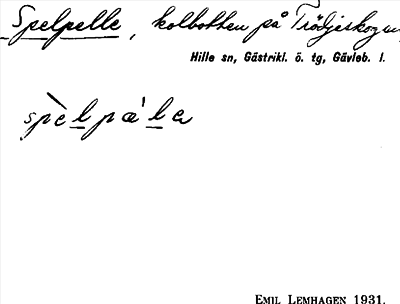 Spelpelle, kolbotten på Trödjeskogen
Hille sn, Gästrikl. ö. tg, Gävleb. l.
spèlpála
EMIL LEMHAGEN 1931.